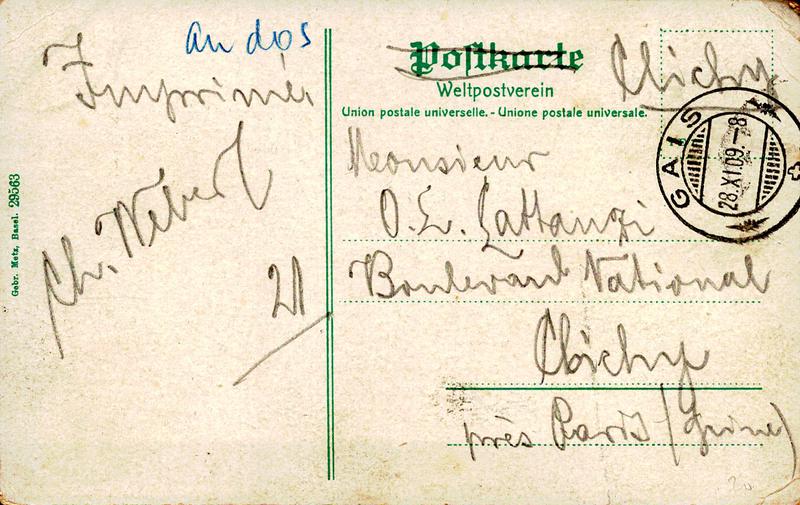 au dos
Imprimés
Ch. Weber
21
Gebr. Metz, Basel. 29563
Postkarte
Weltpostverein
Union postale universelle. - Unione postale universale.
Clichy
GAIS
28.XI.09.-8
Monsieur
O. L. Lattanzi
Boulevard National
Clichy
près Paris (Seine)